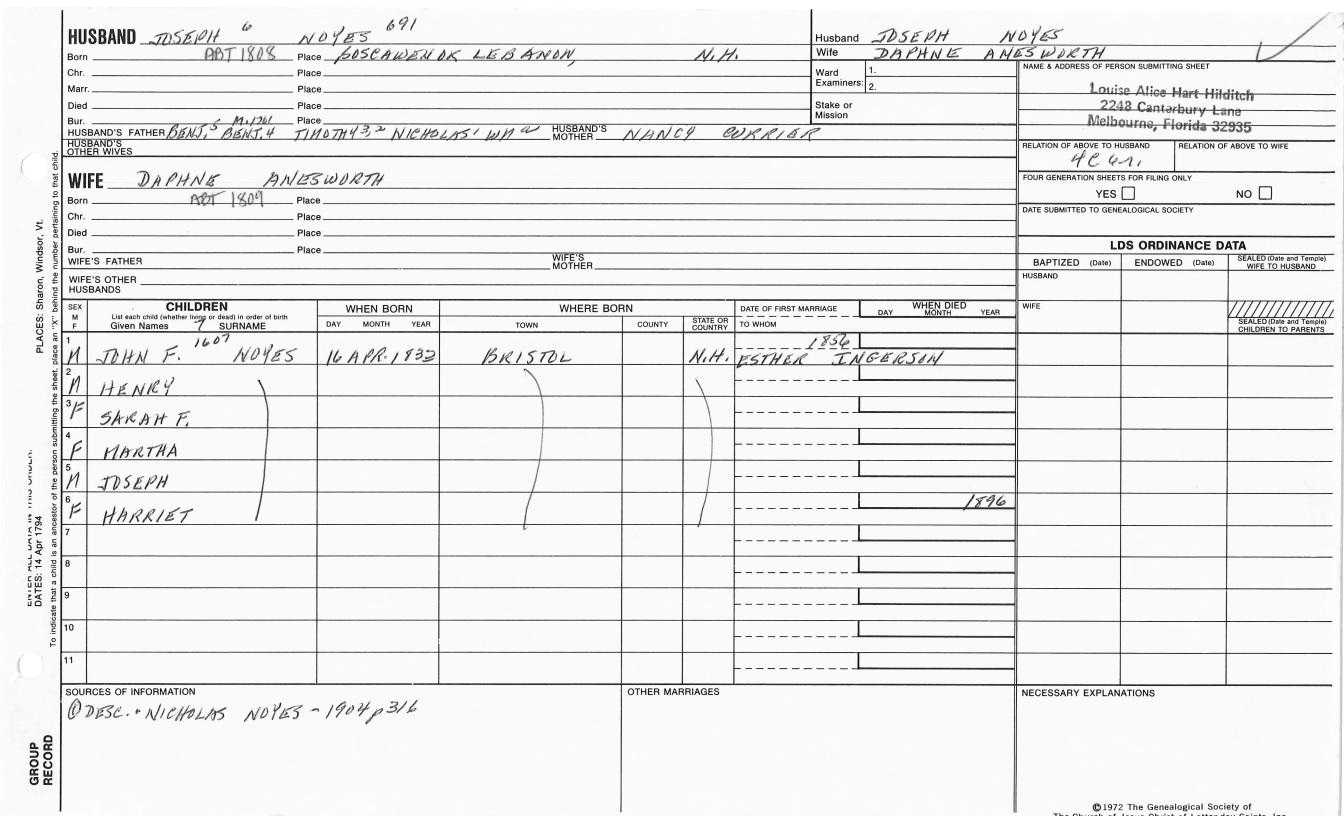 HUSBAND JOSEPH 6 NOYES 691
Born ABT 1808 Place BOSCAWEN OR LEBANON, N.H.
Chr. Place
Marr. Place
Died Place
Bur. Place
HUSBAND'S FATHER BENJ.5 M.1761 BENT.4 TIMOTHY3,2 NICHOLAS1 WM a HUSBAND'S MOTHER NANCY CURRIER
HUSBAND'S OTHER WIVES
WIFE DAPHNE ANESWORTH
Born ABT 1809 Place
Chr. Place
Died Place
Bur. Place
WIFE'S FATHER WIFE'S MOTHER
WIFE'S OTHER HUSBANDS
Husband JOSEPH NOYES
Wife DAPHNE ANESWORTH
Ward Examiners: 1.
2.
Stake or Mission
NAME & ADDRESS OF PERSON SUBMITTING SHEET
Louise Alice Hart Hilditch
2248 Canterbury Lane
Melbourne, Florida 32935
RELATION OF ABOVE TO HUSBAND RELATION OF ABOVE TO WIFE
4C
FOUR GENERATION SHEETS FOR FILING ONLY
YES NO
DATE SUBMITTED TO GENEALOGICAL SOCIETY
LDS ORDINANCE DATA
BAPTIZED (Date) ENDOWED (Date) SEALED (Date and Temple) WIFE TO HUSBAND
HUSBAND
WIFE
SEALED (Date and Temple) CHILDREN TO PARENTS
SEX M F
CHILDREN
List each child (whether living or dead) in order of birth
Given Names 7 SURNAME
WHEN BORN
DAY MONTH YEAR
WHERE BORN
TOWN COUNTY STATE OR COUNTRY
DATE OF FIRST MARRIAGE
TO WHOM
WHEN DIED
DAY MONTH YEAR
1 M JOHN F. 1607 NOYES 16 APR. 1833 BRISTOL N.H. 1856 ESTHER INGERSON
2 M HENRY
3 F SARAH F.
4 F MARTHA
5 M JOSEPH
6 F HARRIET 1896
7
8
9
10
11
SOURCES OF INFORMATION
① DESC. NICHOLAS NOYES - 1904 p316
OTHER MARRIAGES
NECESSARY EXPLANATIONS
©1972 The Genealogical Society of
The Church of Jesus Christ of Latter-day Saints, Inc.
PLACES: Sharon, Windsor, Vt.
ENTER ALL DATA IN THIS ORDER:
DATES: 14 Apr 1794
To indicate that a child is an ancestor of the person submitting the sheet, place an "X" behind the number pertaining to that child.
GROUP RECORD